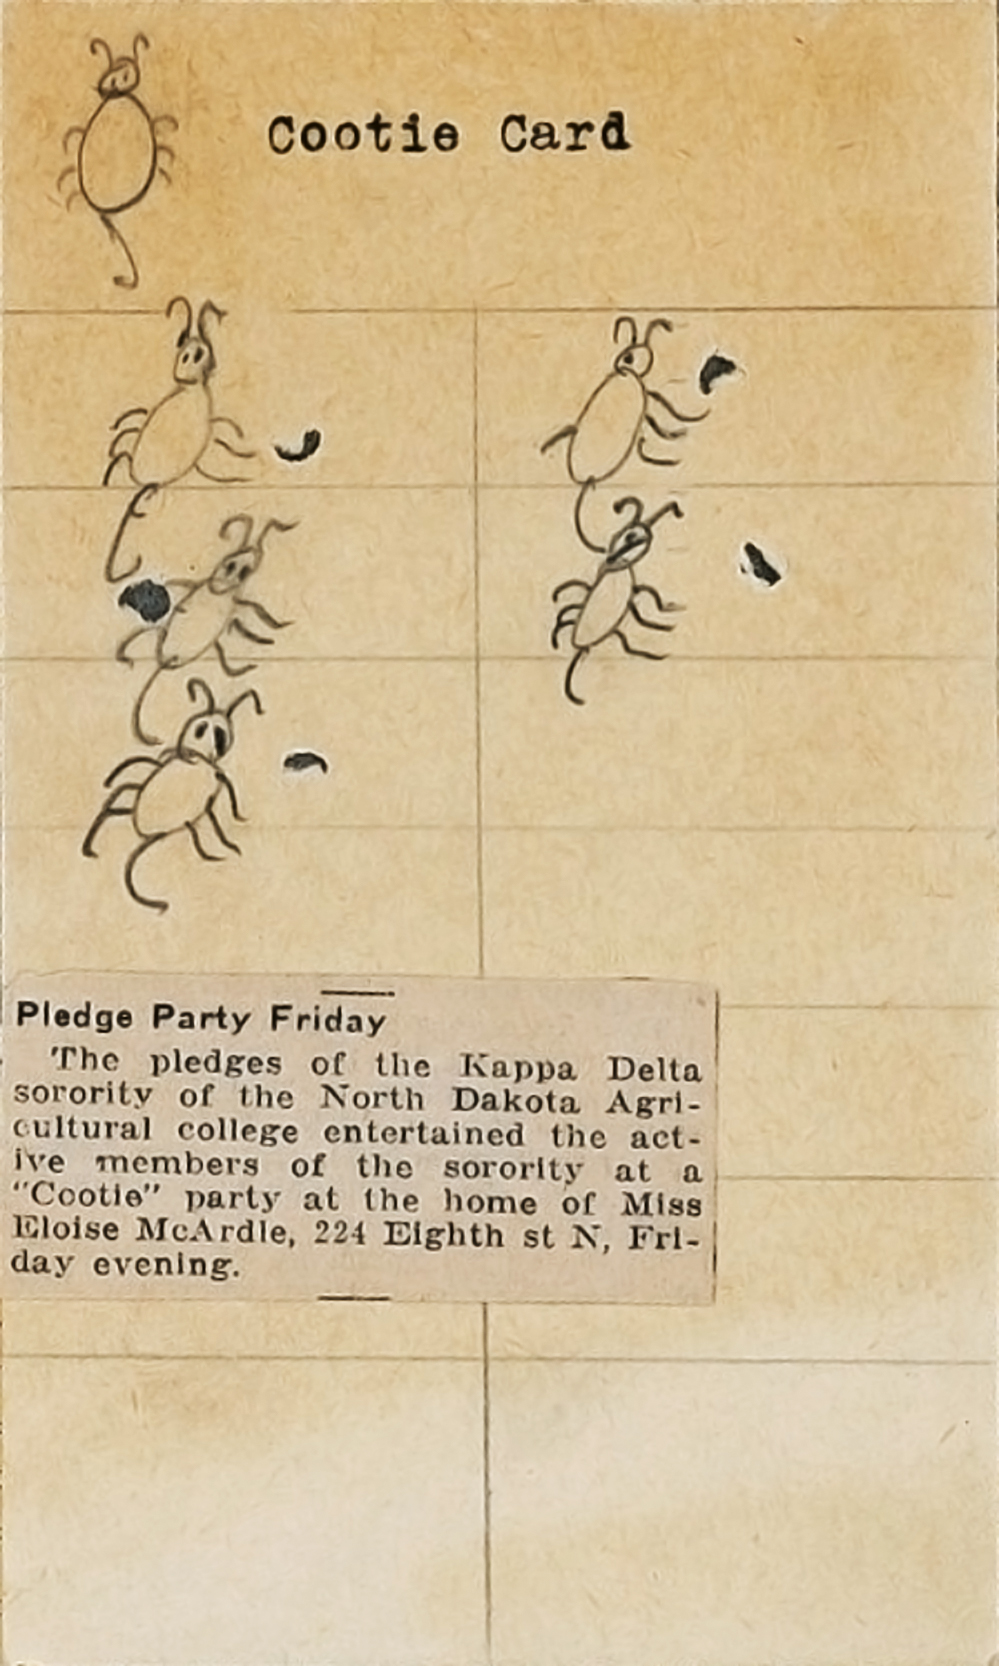 Cootie Card
Pledge Party Friday
The pledges of the Kappa Delta
sorority of the North Dakota Agri-
cultural college entertained the act-
ive members of the sorority at a
"Cootie" party at the home of Miss
Eloise McArdle, 224 Eighth st N, Fri-
day evening.